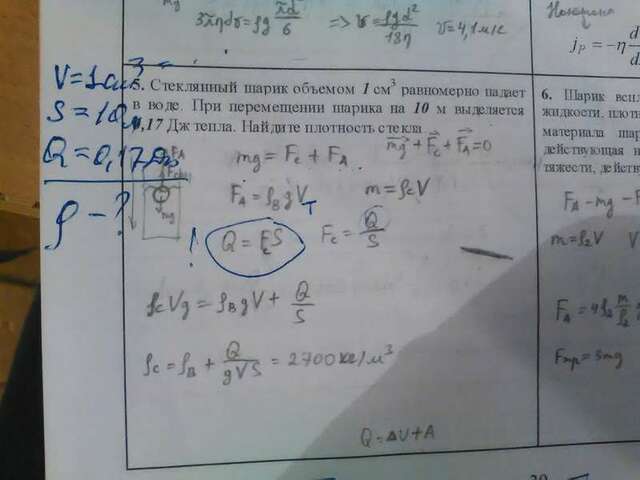 3πηdv = ρg πd/6 => v = ρgd²/18η v = 4,1 м/с
j_P = -η d
V = 1 см³
S = 10 м
Q = 0,17 Дж
ρ - ?
5. Стеклянный шарик объемом 1 см³ равномерно падает
в воде. При перемещении шарика на 10 м выделяется
0,17 Дж тепла. Найдите плотность стекла.
mg = F_c + F_A mg + F_c + F_A = 0
F_A = ρ_в g V_T m = ρ_c V
! Q = F_c S F_c = Q/S
ρ_c Vg = ρ_в gV + Q/S
ρ_c = ρ_в + Q/gVS = 2700 кг/м³
Q = ΔU + A
F_A
mg
6. Шарик
жидкости, плотн
материала шар
действующая н
тяжести, действу
F_A - mg - F
m = ρ₂V V
F_A = 4ρ₂ m/ρ₂
F_тр = 3mg